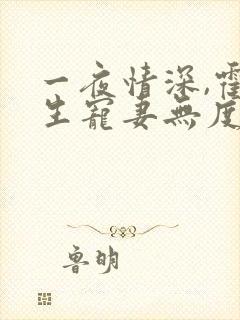 一夜情深,霍
生寵妻無度
鲁明